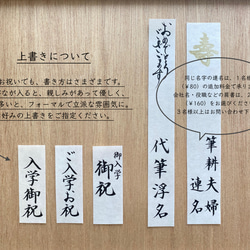 上書きについて
お祝いても、書き方はさまざまです。
なが入ると、親しみがあって優しく、
多いと、フォーマルで立派な雰囲気に。
好みの上書きをご指定ください。
入学御祝
ご入学お祝
御入学
御祝
寿
代筆浮名
同じ名字の連名は、1名様
(¥80)の追加料金で承りま
会社名・役職などの肩書は、2
(¥160)をお選びくださ
3名様以上はお問い合わせ下
筆耕夫婦
連名